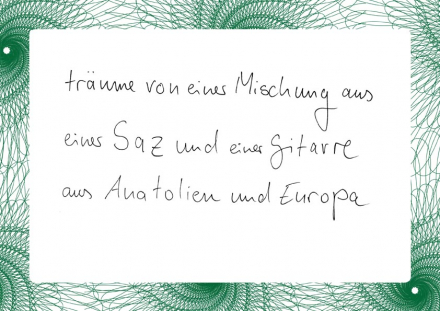 träume von einer Mischung aus
einer Saz und einer Gitarre
aus Anatolien und Europa